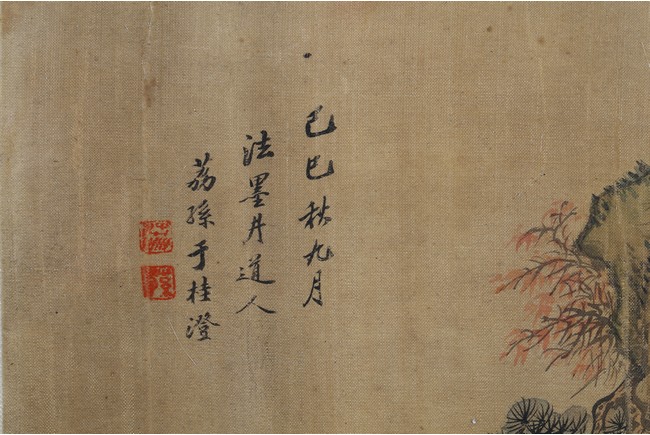 己巳秋九月
法墨井道人
荔孫于桂澄
荔
孫